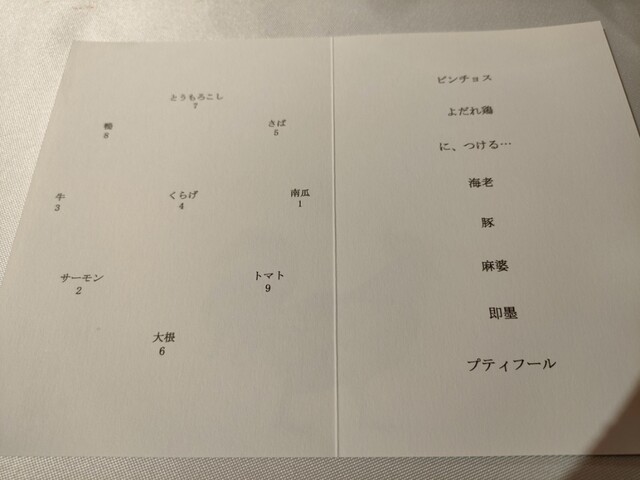 とうもろこし
7
鴨
8
さば
5
牛
3
くらげ
4
南瓜
1
サーモン
2
トマト
9
大根
6
ピンチョス
よだれ鶏
に、つける…
海老
豚
麻婆
即墨
プティフール